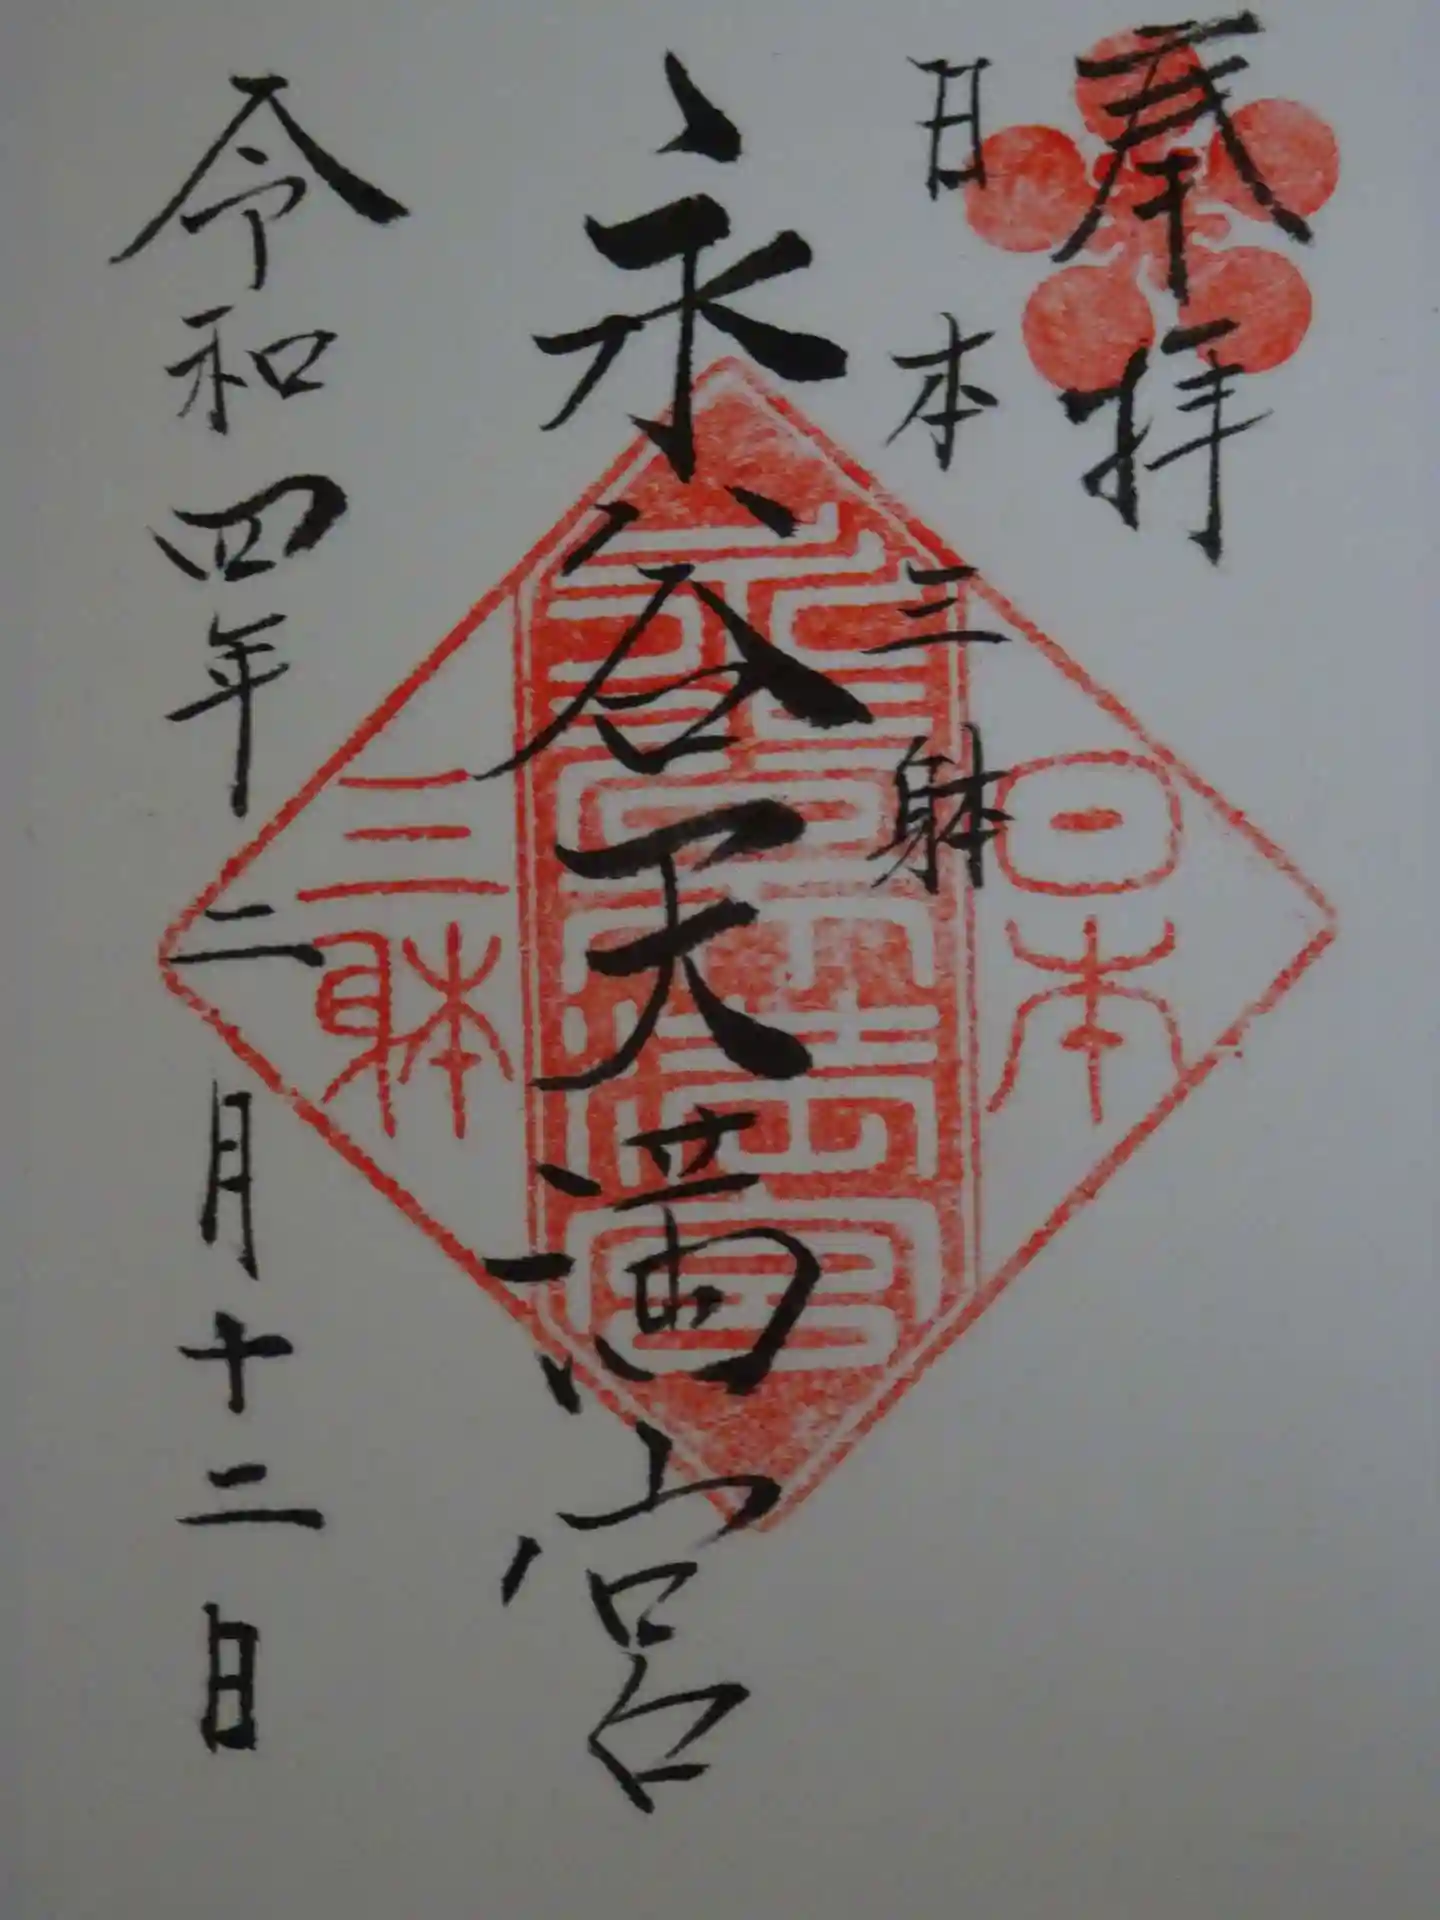 奉拝
日本三躰
永谷天満宮
令和四年二月十二日
日本
永谷天満宮
三躰